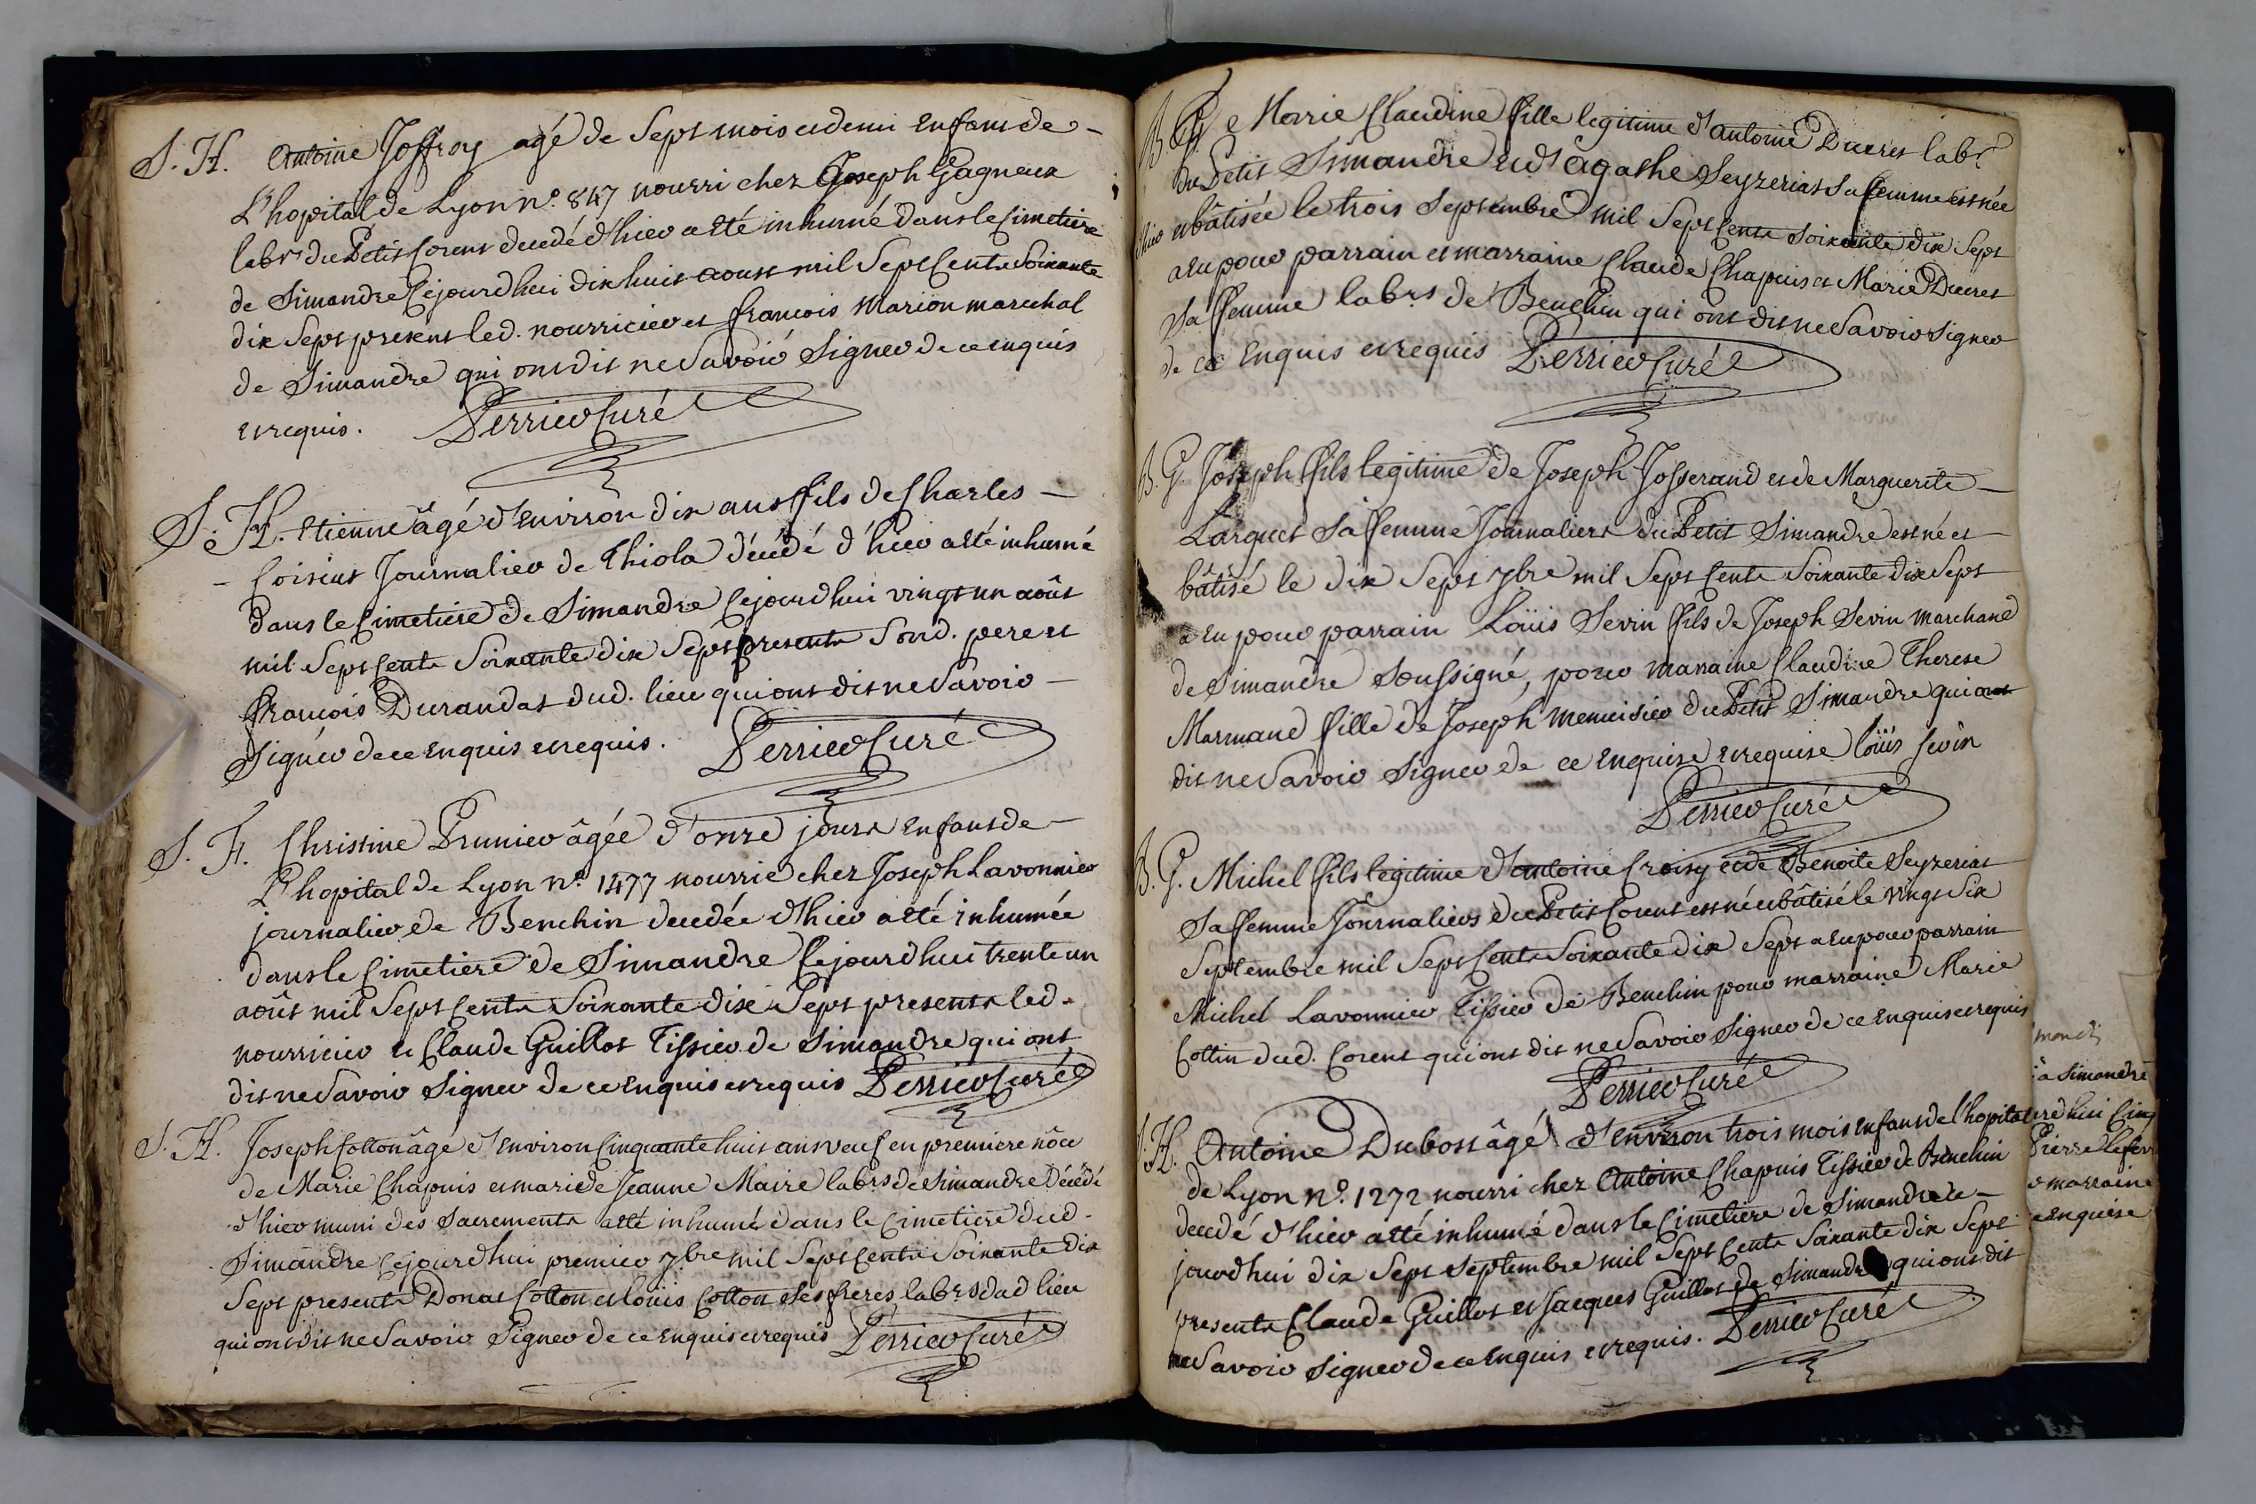 S. H. Antoine Joffroy agé de Sept mois et demi Enfant de
L'hopital de Lyon n.° 847 nourri chez Joseph Gagneux
labr du Petit Corent decedé d'hier a eté inhumé dans le Cimetiere
de Simandre Cejourdhui dix huit aoust mil Sept Cents Soixante
dix Sept present led. nourricier et francois Marion marechal
de Simandre qui ont dit ne Savoir Signer de ce enquis
et requis. Perrier Curé
S. H. Etienne âgé d'Environ dix ans fils de Charles
Journalier de Thiola décédé d'hier a eté inhumé
dans le Cimetiere de Simandre Cejourdhui vingt un août
mil Sept Cents Soixante dix Sept presents Sond. pere et
françois Durandat dud. lieu qui ont dit ne Savoir
Signer de ce Enquis et requis. Perrier Curé
S. F. Christine Prunier âgée d'onze jours Enfant de
L'hopital de Lyon n.° 1477 nourrie chez Joseph Lavonnier
journalier de Benchin decedée d'hier a eté inhumée
dans le Cimetiere de Simandre Cejourdhui trente un
août mil Sept Cents Soixante dix Sept presents led.
nourricier et Claude Guillot Tissier de Simandre qui ont
dit ne Savoir Signer de ce enquis et requis Perrier Curé
S. H. Joseph Cotton âgé d'Environ Cinquante huit ans veuf en premiere nôce
de Marie Chapuis et mari de Jeanne Maire labrs de Simandre Décédé
d'hier muni des Sacrements a eté inhumé dans le Cimetiere dud.
Simandre Cejourdhui premier 7bre mil Sept Cents Soixante dix
Sept presents Donat Cotton et louis Cotton Ses freres labrs dud lieu
qui ont dit ne Savoir Signer de ce Enquis et requis Perrier Curé
B. Marie Claudine fille legitime d'antoine Ducret labr
du Petit Simandre et d'agathe Seyzeriat Sa femme est née
et bâtisée le trois Septembre mil Sept Cents Soixante dix Sept
a eu pour parrain et marraine Claude Chapuis et Marie Ducret
Sa femme labrs de Benchin qui ont dit ne Savoir Signer
de ce Enquis et requis Perrier Curé
B. G. Joseph fils legitime de Joseph Josserand et de Marguerite
Larguet Sa femme Journaliers du Petit Simandre est né et
bâtisé le dix Sept 7bre mil Sept Cents Soixante dix Sept
a eu pour parrain Loüis Sevin fils de Joseph Sevin Marchand
de Simandre Soussigné, pour marraine Claudine Therese
Marmand fille de Joseph Menuisier du Petit Simandre qui ont
dit ne Savoir Signer de ce Enquise et requise loüis sevin
Perrier Curé
B. G. Michel fils legitime d'antoine Croisy et de Benoite Seyzeriat
Sa femme Journaliers du Petit Corent est né et bâtisé le vingt Six
Septembre mil Sept Cents Soixante dix Sept a eu pour parrain
Michel Lavonnier Tissier de Benchin pour marraine Marie
Cottin dud. Corent qui ont dit ne Savoir Signer de ce Enquis et requis
Perrier Curé
S. H. Antoine Dubost âgé d'Environ trois mois Enfant de l'hopital
de Lyon N.° 1272 nourri chez Antoine Chapuis Tissier de Benchin
decedé d'hier a eté inhumé dans le Cimetiere de Simandre Ce
jourdhui dix Sept Septembre mil Sept Cents Soixante dix Sept
presents Claude Guillot et Jacques Guillot de Simandre qui ont dit
ne Savoir Signer de ce Enquis et requis. Perrier Curé
à Simandre
Pierre
marraine
Enquise